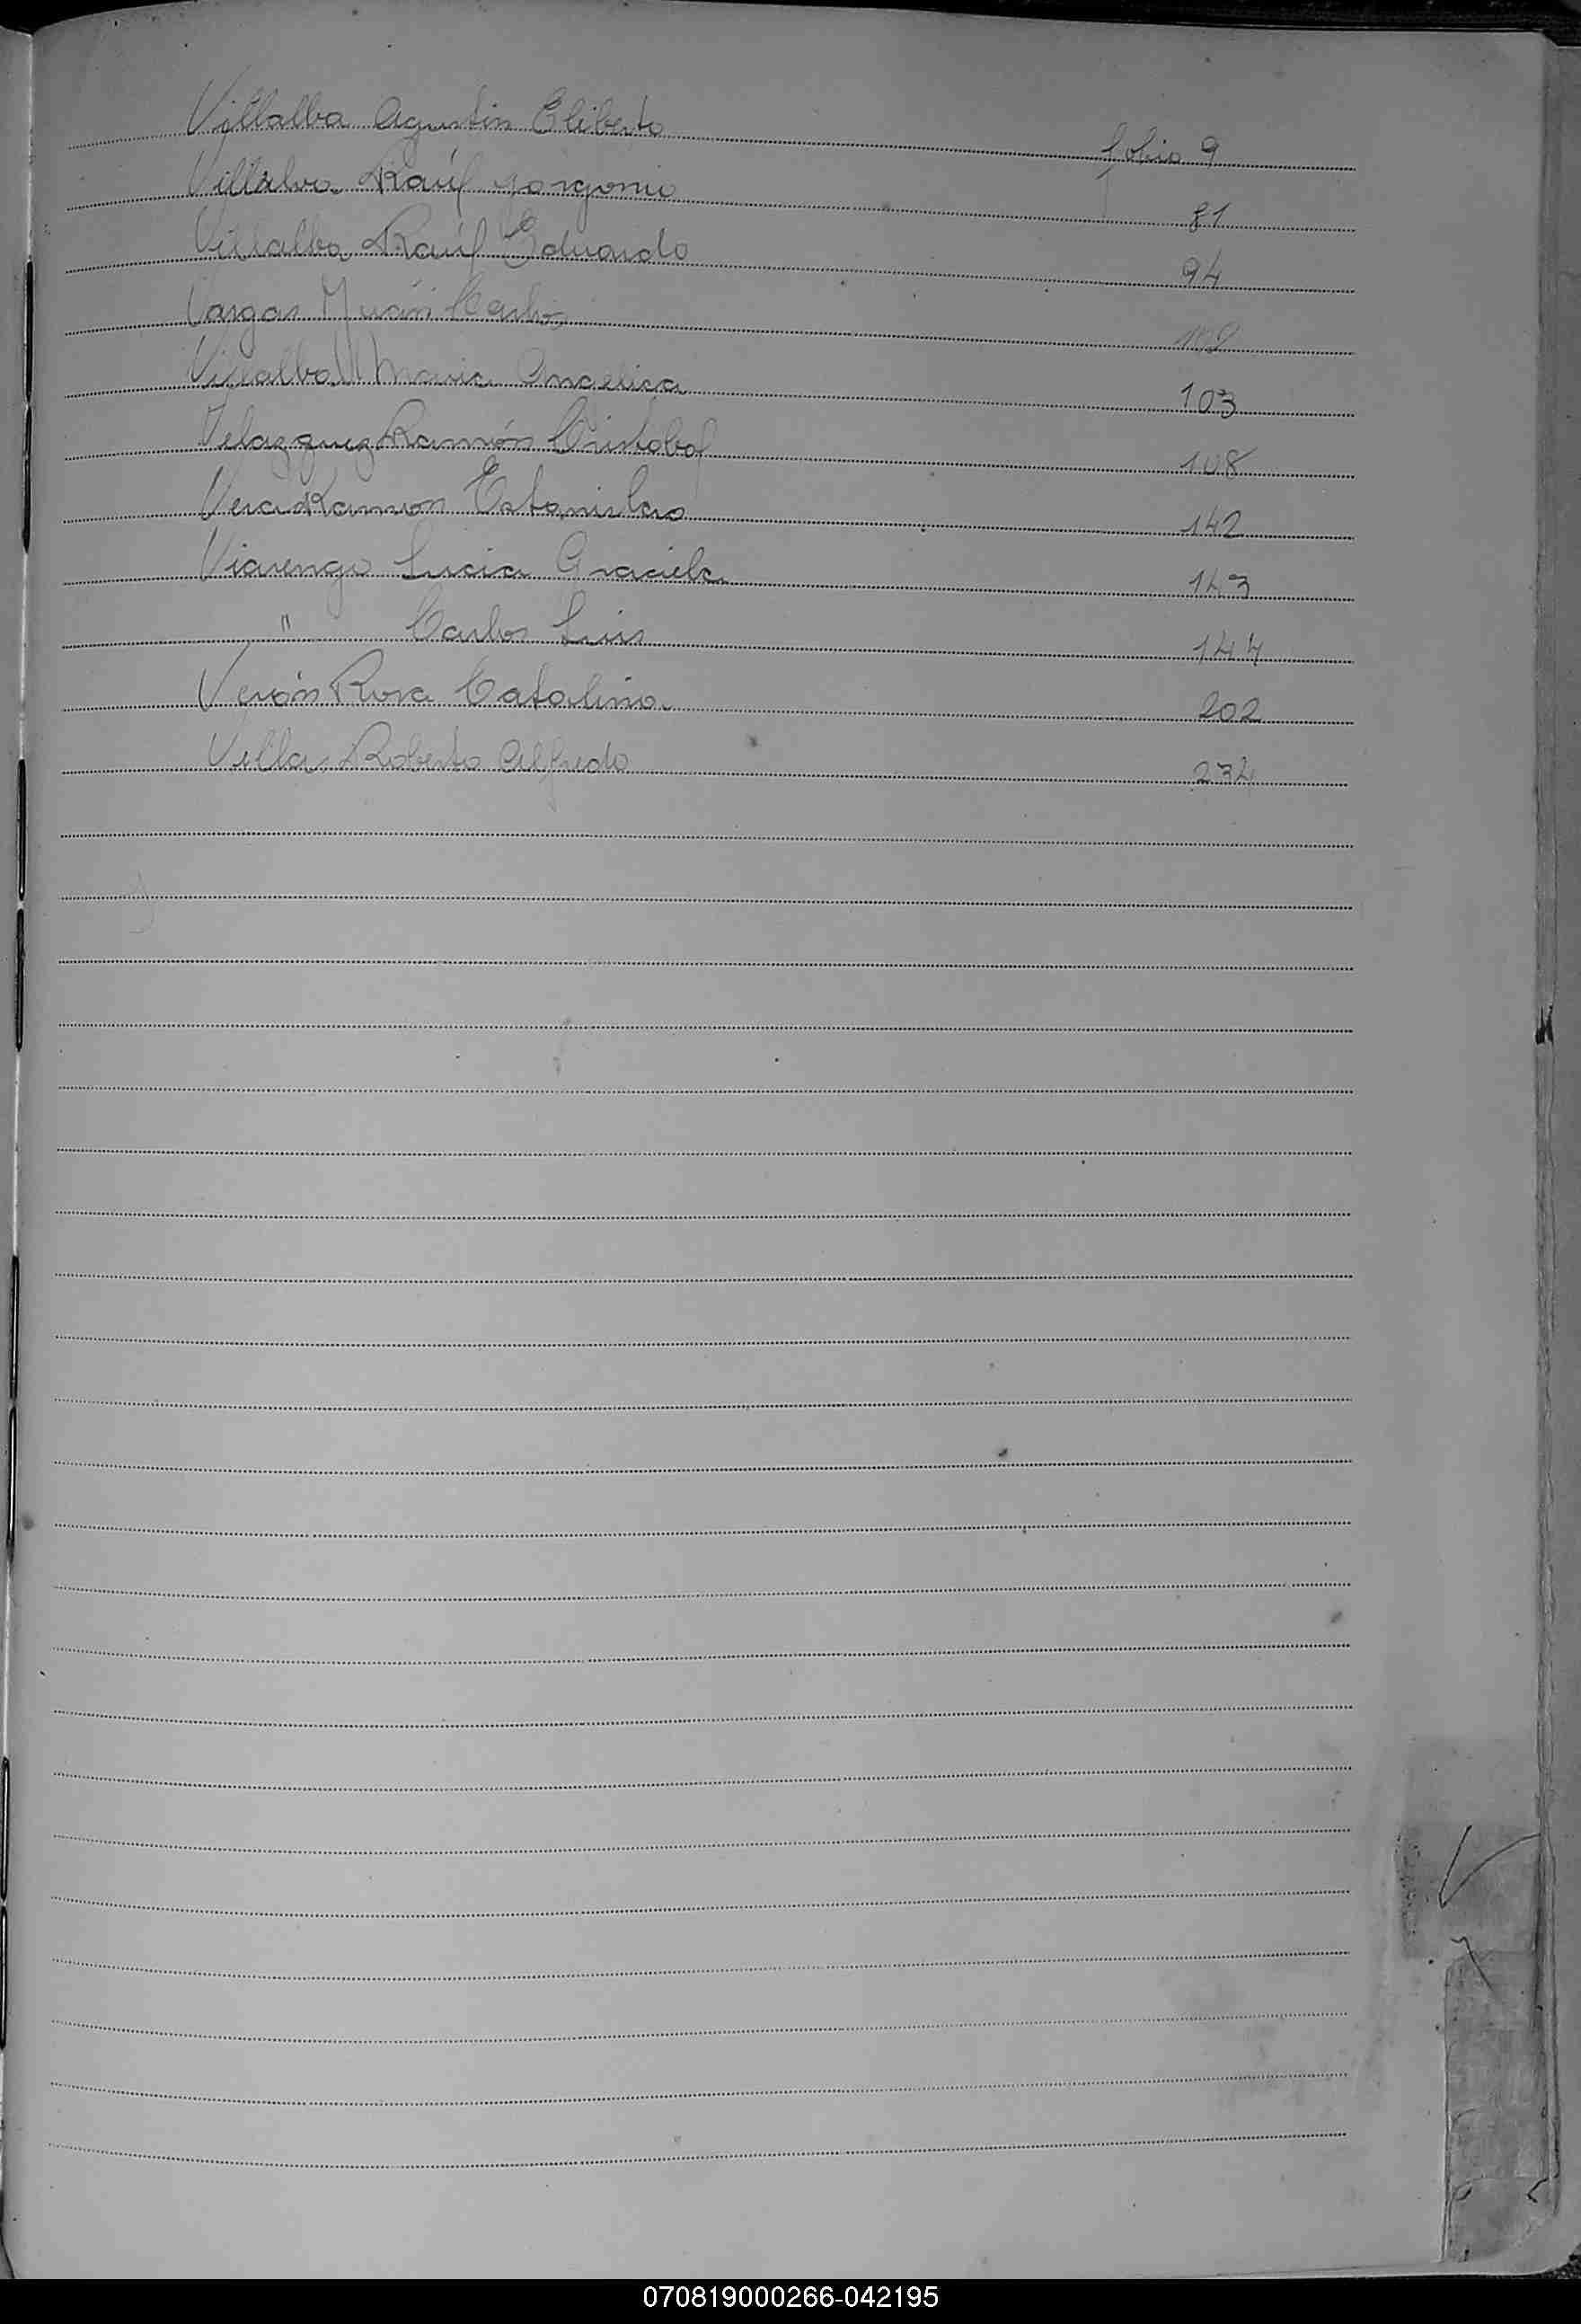 Villalba Agustin Eliberto folio 9
Villalva Raúl Gorgonio 81
Villalba Raúl Eduardo 94
Vargas Juan Carlos 102
Villalba Maria Angelica 103
Velazquez Ramón Cristobal 108
Vera Ramon Estanislao 142
Viarengo Lucia Graciela 143
" Carlos Luis 144
Verón Rosa Catalina 202
Villa Roberto Alfredo 234
V
070819000266-042195